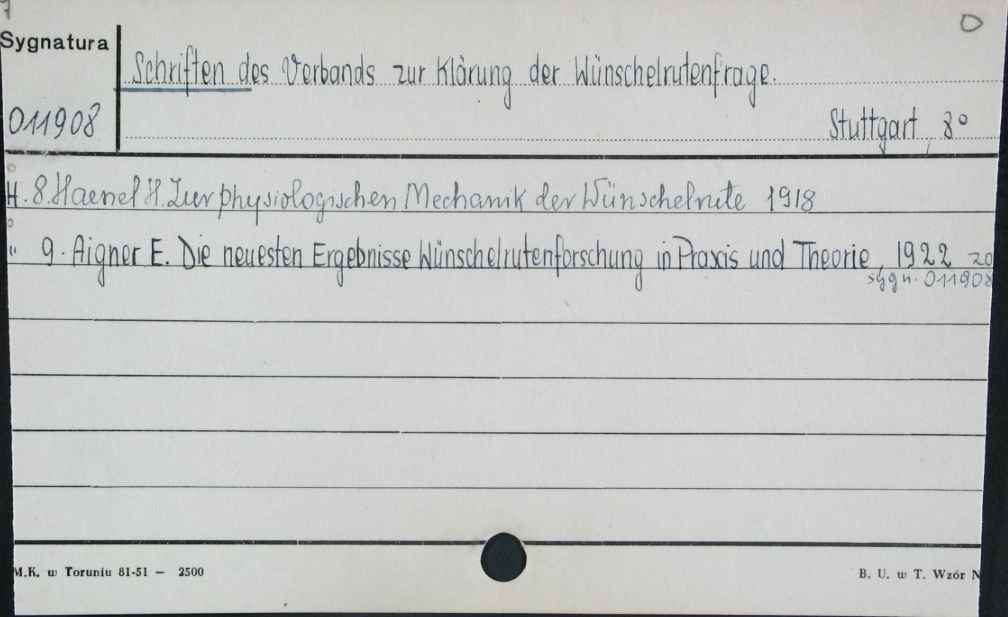 7
D
Sygnatura
Schriften des Verbands zur Klärung der Wünschelrutenfrage.
011908
Stuttgart, 8°
H. 8. Haenel H. Zur physiologischen Mechanik der Wünschelrute 1918
" 9. Aigner E. Die neuesten Ergebnisse Wünschelrutenforschung in Praxis und Theorie, 1922 zo
sygn. 011908
M.K. w Toruniu 81-51 — 2500
B. U. w T. Wzór N